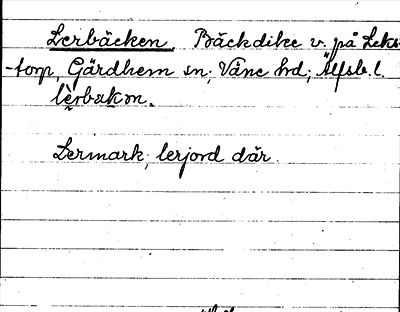 Lerbäcken. Bäckdike v. på Leks-
-torp, Gärdhem sn; Väne hd; Älfsb. l.
lèrbakən.
Lermark, lerjord där.